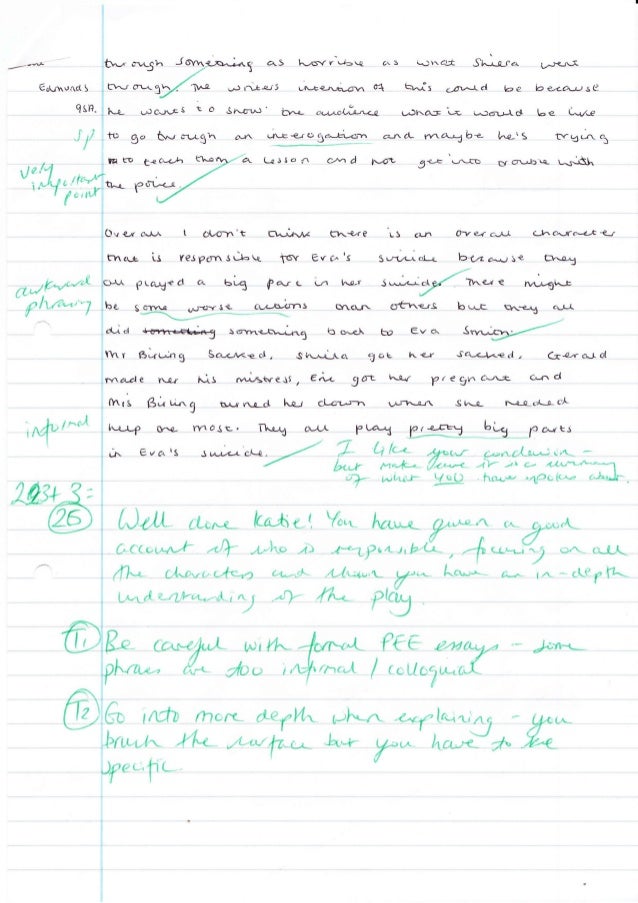 through something as horrible as what Shiera went
Edmunds through. The writers intention of this could be because
9SA. he wants to show the audience what it would be like
sp to go through an interogation and maybe he's trying
to teach them a lesson and not get into trouble with
very important point the police.
Overall I don't think there is an overall character
that is responsible for Eva's suicide because they
awkward phrasing all played a big part in her suicide. There might
be some worse actions than others but they all
did something something bad to Eva Smith.
Mr Birling sacked, Sheila got her sacked, Gerald
made her his mistress, Eric got her pregnant and
Mrs Birling turned her down when she needed
informal help the most. They all play pretty big parts
in Eva's suicide. I like your conclusion -
but make sure it is a summary
of what YOU have spoken about.
23+3=
25 Well done Katie! You have given a good
account of who is responsible, focusing on all
the characters and shown you have an in-depth
understanding of the play.
T1 Be careful with formal PEE essays - some
phrases are too informal / colloquial
T2 Go into more depth when explaining - you
brush the surface but you have to be
specific.